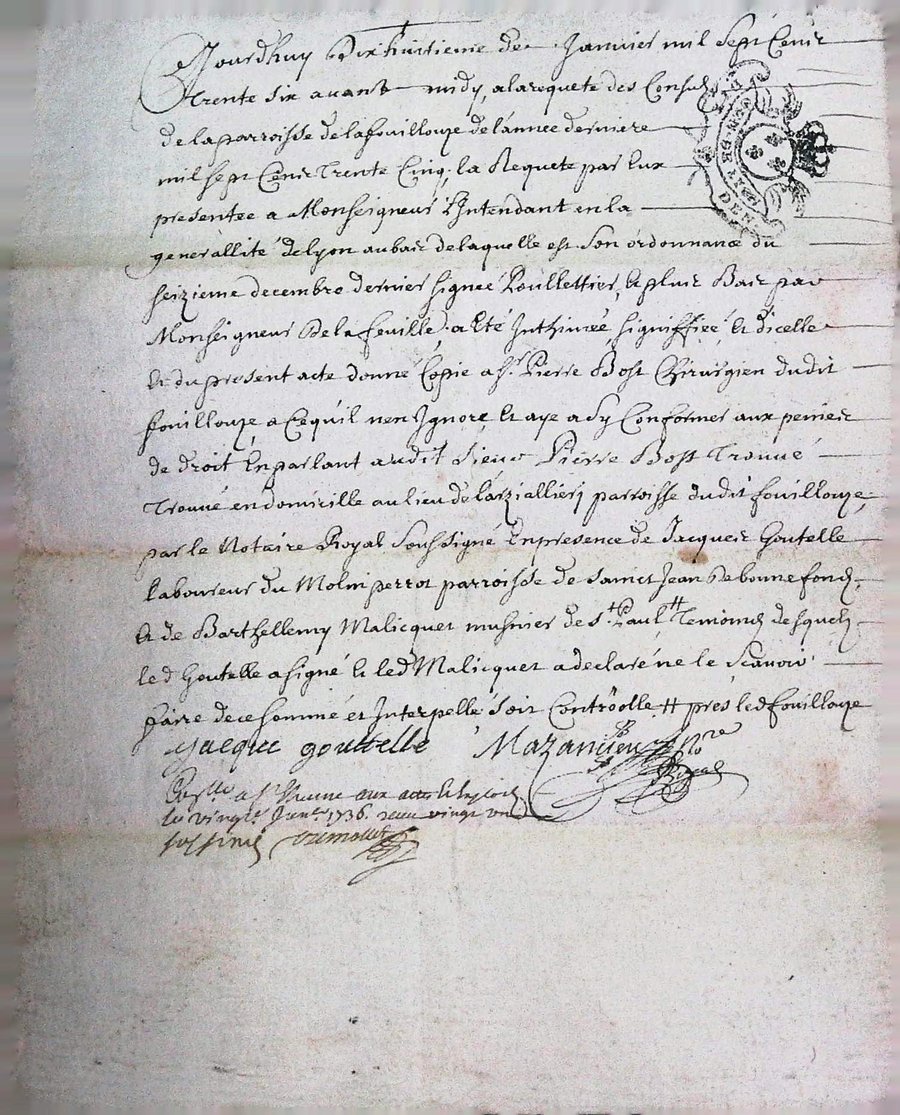 Jourdhuy Dix huitieme de Janvier mil sept Cent
Trente six avant midy, a la requete des Consuls
de la parroisse de la fouillouze de l'année derniere
mil sept Cent Trente Cinq, la Requete par Eux
presentée a Monseigneur L'Intendant en la
generallité de Lyon au bas de laquelle est son ordonnance du
seizieme decembre dernier signée Poullettier, & plus Bas par
Monseigneur De la feuille, a Eté Inthimée, signiffiée, & d'icelle
& du present acte donné Copie a Sr. Pierre Bost Chirurgien dudit
fouillouze a Cequil nen Ignore, & aye a sy Conformer aux peines
de droit En parlant audit Sieur Pierre Bost Trouvé
Trouvé en domicille au lieu de Larziallier, parroisse dudit fouillouze,
par le Notaire Royal Soussigné En presence de Jacques Goutelle
laboureur du Molin perrot parroisse de Sainct Jean De bonnefond,
& de Barthellemy Malicquet musnier de St. Paul # Temoins desquels
led Goutelle a signé & led Malicquet a declaré ne le Scavoir
faire de ce sommé et Interpellé soit Controlle # pres led fouillouze
Jacque gouttelle Mazancieux Nore
Royal
a St. Etienne aux actes
le vingt Janr. 1736. receu vingt un
sols six
GEN. DE LYON